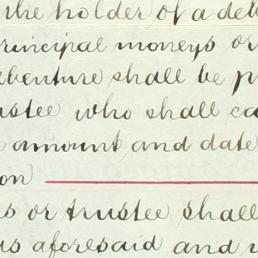 the holder of a deb
rincipal moneys or
ebenture shall be p
ustee who shall ca
amount and date
on
s or trustee shall
us aforesaid and